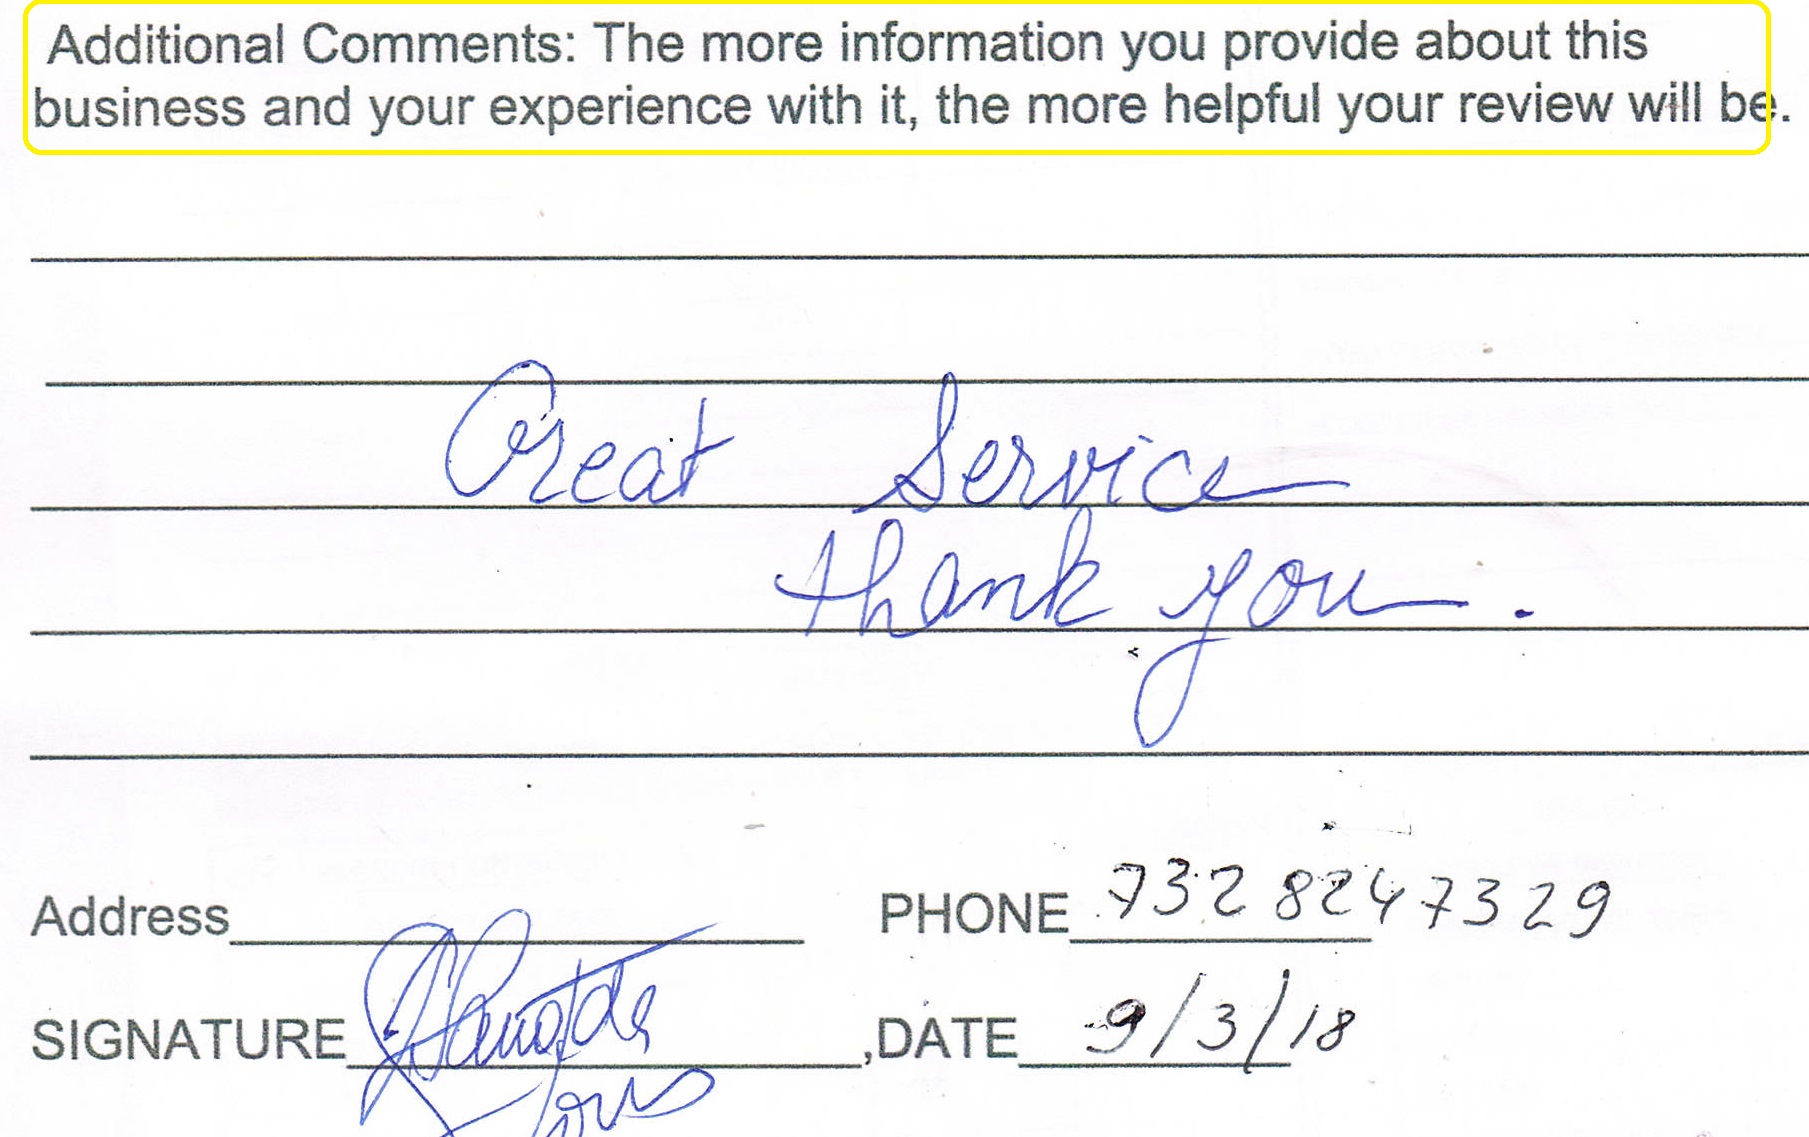 Additional Comments: The more information you provide about this
business and your experience with it, the more helpful your review will be.
Great Service
thank you.
Address PHONE 732 824 7329
SIGNATURE ,DATE 9/3/18